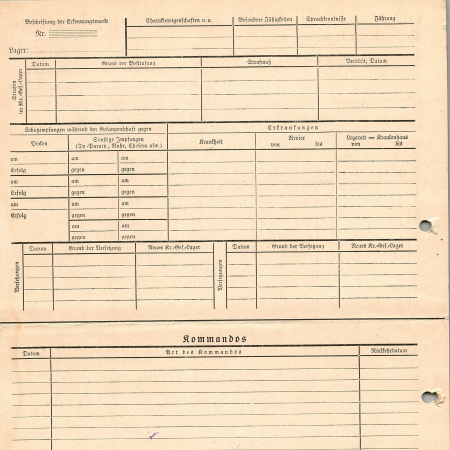 Beschriftung der Erkennungsmarke
Nr.
Lager:
Charaktereigenschaften u. a. Besondere Fähigkeiten Sprachkenntnisse Führung
Strafen im Kr.-Gef.-Lager
Datum Grund der Bestrafung Strafmaß Verbüßt, Datum
Schutzimpfungen während der Gefangenschaft gegen Erkrankungen
Pocken Sonstige Impfungen Krankheit Revier Lazarett — Krankenhaus
(Ty.-Paraty., Ruhr, Cholera usw.) von bis von bis
am am am
Erfolg gegen gegen
am am am
Erfolg gegen gegen
am am am
Erfolg gegen gegen
am am
gegen gegen
Versetzungen
Datum Grund der Versetzung Neues Kr.-Gef.-Lager
Versetzungen
Datum Grund der Versetzung Neues Kr.-Gef.-Lager
Kommandos
Datum Art des Kommandos Rückkehrdatum